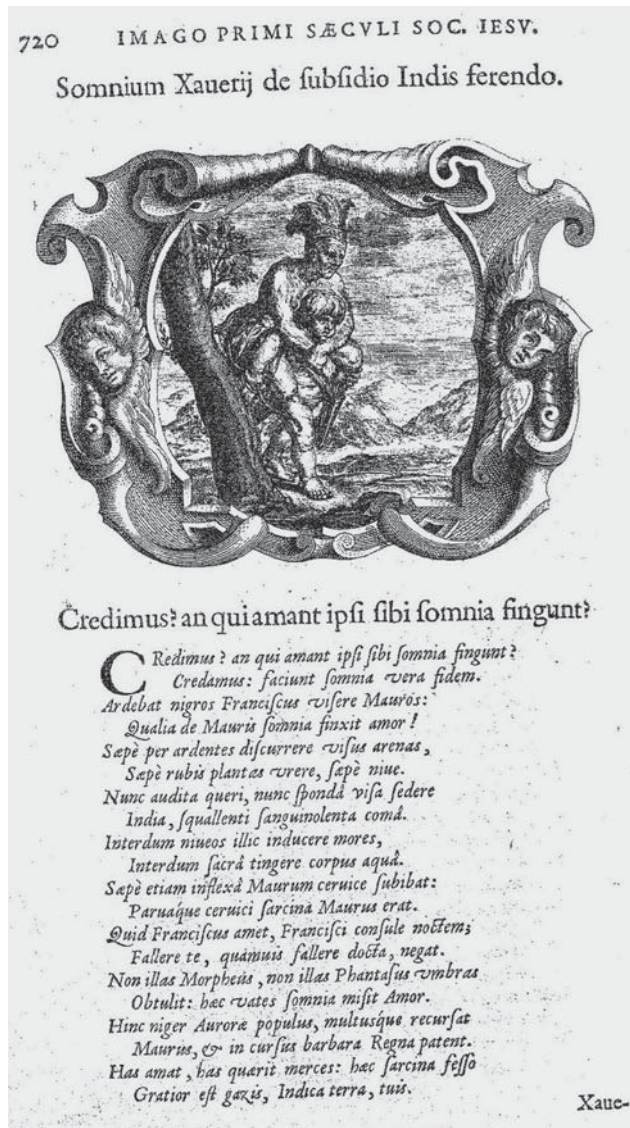 720 IMAGO PRIMI SÆCVLI SOC. IESV.
Somnium Xauerij de ſubſidio Indis ferendo.
Credimus? an qui amant ipſi ſibi ſomnia fingunt?
CRedimus? an qui amant ipſi ſibi ſomnia fingunt?
Credamus: faciunt ſomnia vera fidem.
Ardebat nigros Franciſcus viſere Mauros:
Qualia de Mauris ſomnia finxit amor!
Sæpè per ardentes diſcurrere viſus arenas,
Sæpè rubis plantas vrere, ſæpè niue.
Nunc audita queri, nunc ſpondâ viſa ſedere
India, ſquallenti ſanguinolenta comâ.
Interdum niueos illic inducere mores,
Interdum ſacrâ tingere corpus aquâ.
Sæpè etiam inflexâ Maurum ceruice ſubibat:
Paruaque ceruici ſarcina Maurus erat.
Quid Franciſcus amet, Franciſci conſule noctem;
Fallere te, quamuis fallere docta, negat.
Non illas Morpheus, non illas Phantaſus vmbras
Obtulit: hæc vates ſomnia miſit Amor.
Hinc niger Auroræ populus, multuſque recurſat
Maurus, & in curſus barbara Regna patent.
Has amat, has quærit merces: hæc ſarcina feſſo
Gratior eſt gazis, Indica terra, tuis.
Xaue-